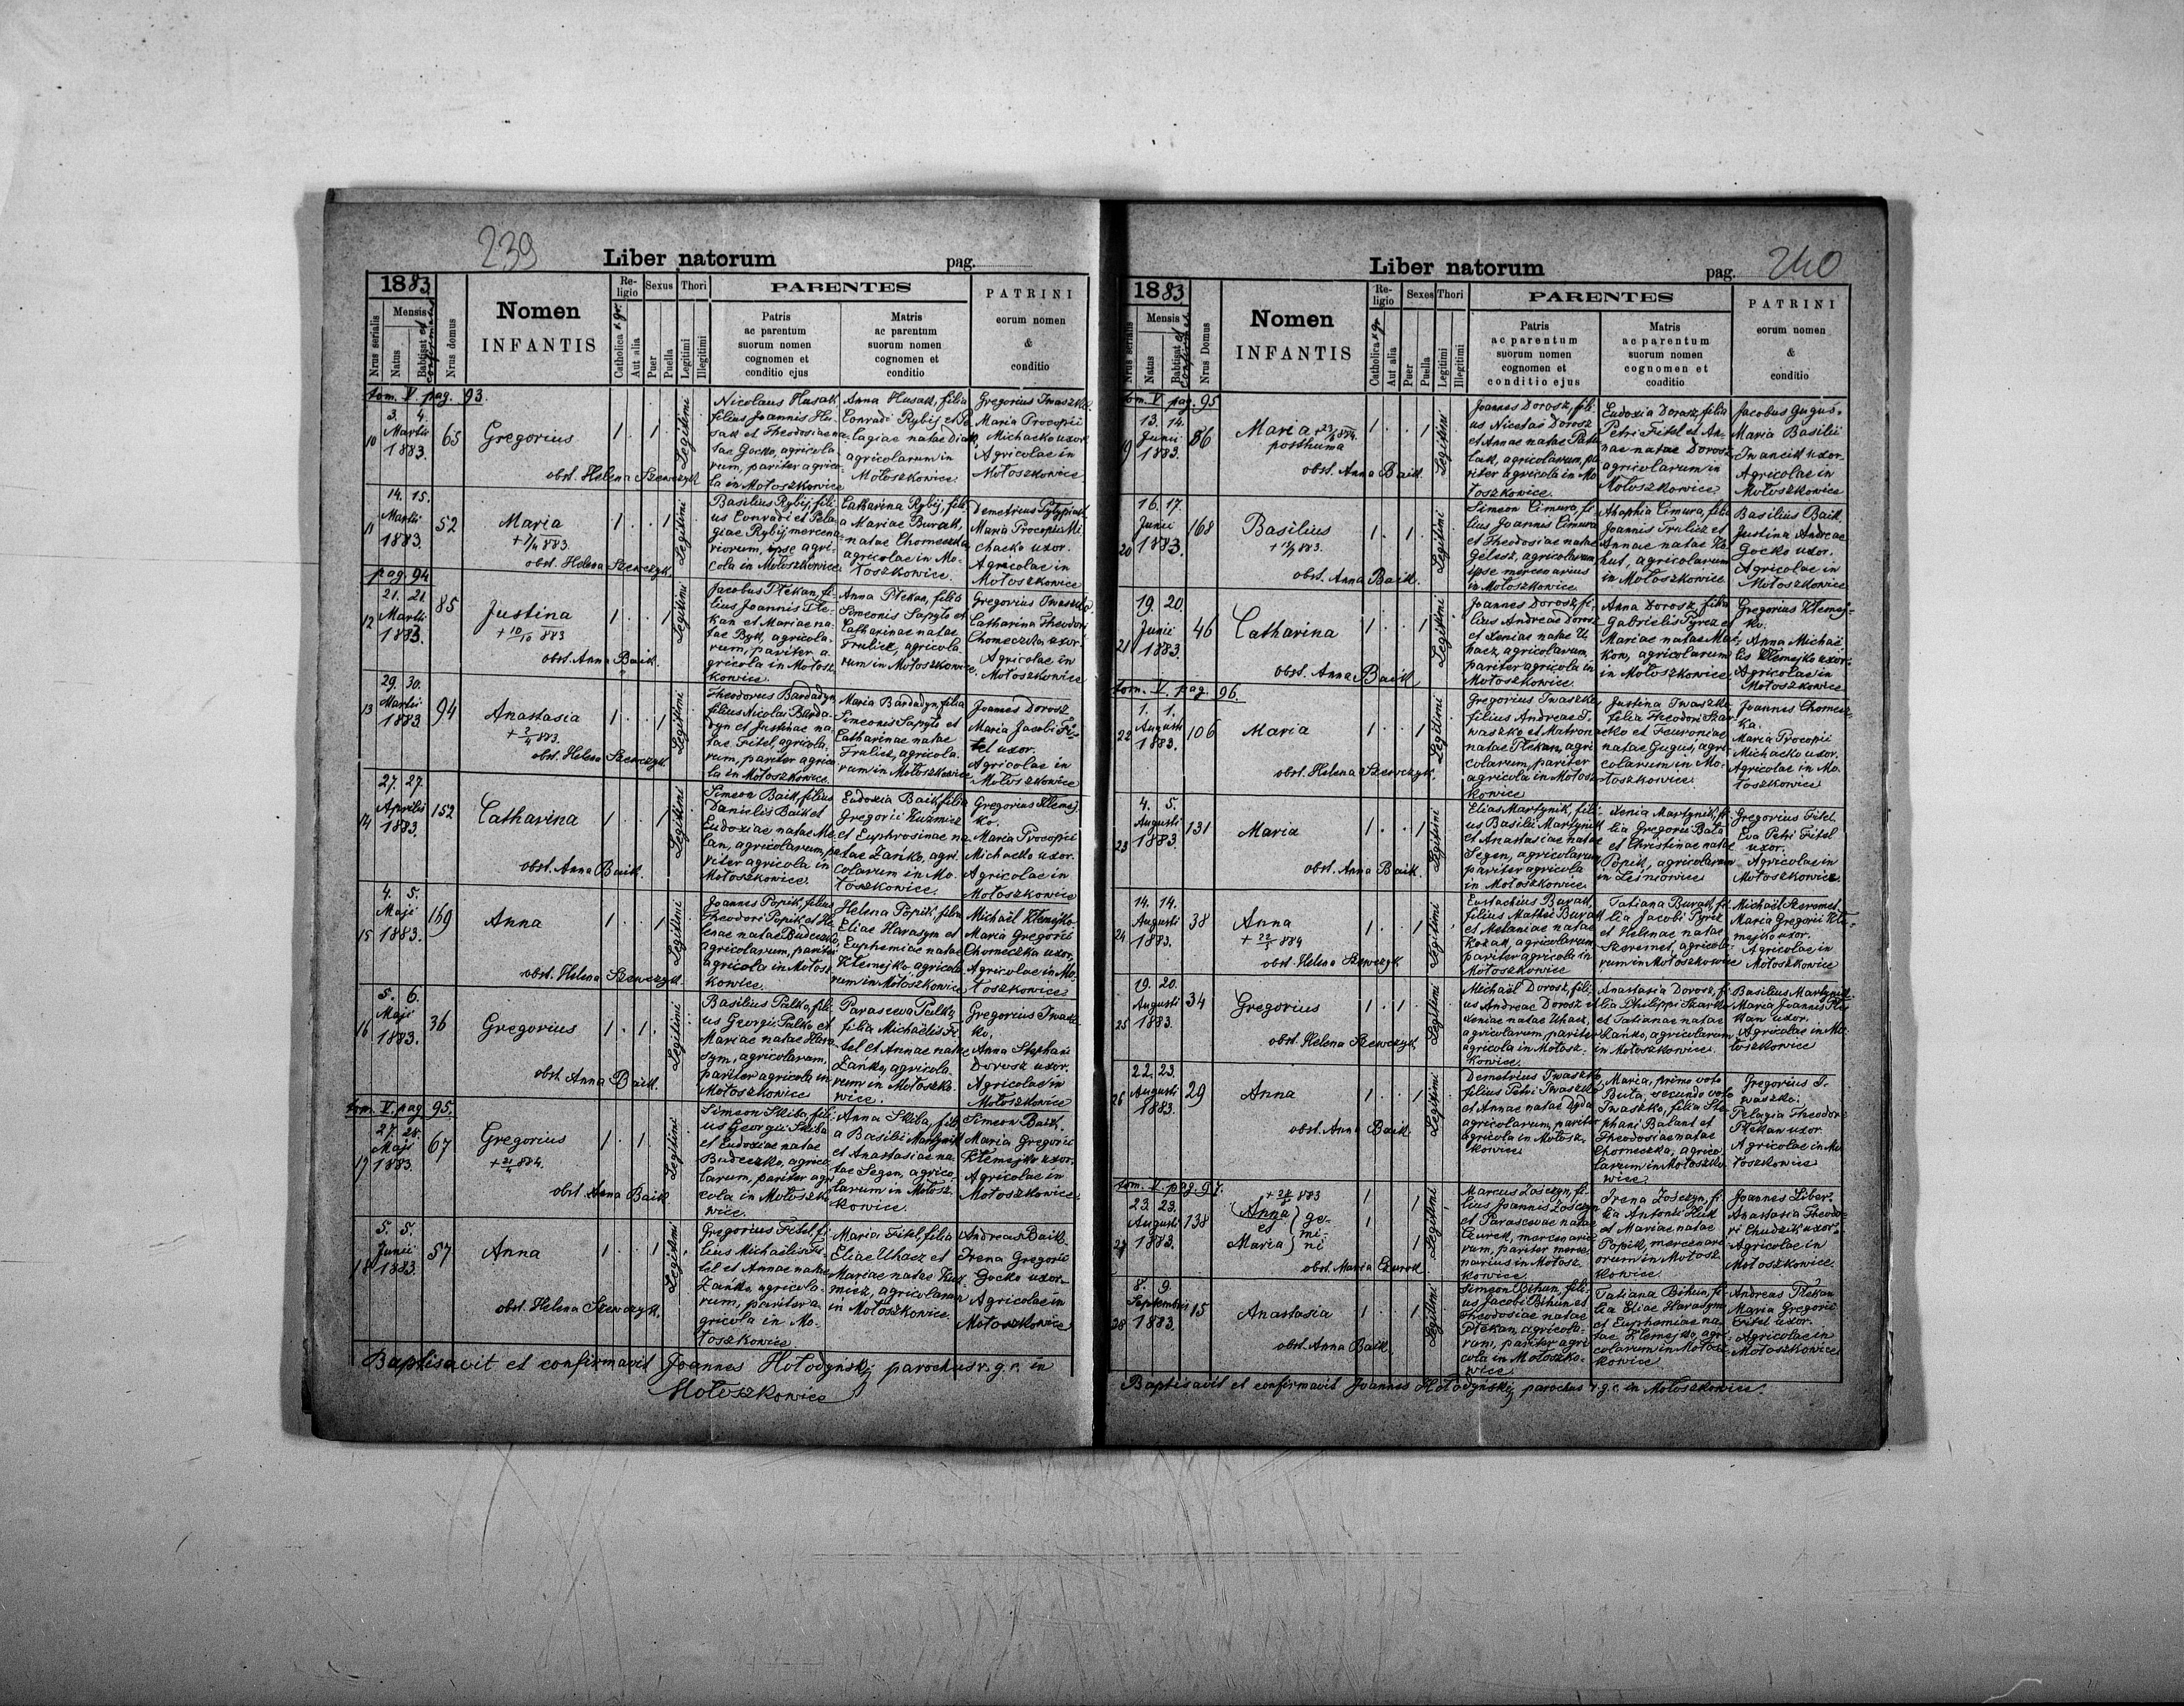 239
Liber natorum
pag.
1883
Nrus serialis
Mensis
Natus
Babtisat et confirmatus
Nrus domus
Nomen
INFANTIS
Religio
Catholica r. gr.
Aut alia
Sexus
Puer
Puella
Thori
Legitimi
Illegitimi
PARENTES
Patris
ac parentum
suorum nomen
cognomen et
conditio ejus
Matris
ac parentum
suorum nomen
cognomen et
conditio
PATRINI
eorum nomen
&
conditio
tom. V. pag. 93.
10
3. 4.
Martii
1883.
65
Gregorius
obst. Helena Szewczyk
1 . 1 .
Legitimi
Nicolaus Husak
filius Joannis Hu-
sak et Theodosiae na-
tae Gocko, agricola-
rum, pariter agrico-
la in Mołoszkowice
Anna Husak, filia
Conradi Rybij et Pe-
lagiae natae Diak,
agricolarum in
Mołoszkowice.
Gregorius Iwaszko.
Maria Procopii
Michacko uxor
Agricolae in
Mołoszkowice
11
14. 15.
Martii
1883.
52
Maria
obst. Helena Szewczyk.
1 . . 1
Legitimi
Basilius Rybij, fili-
us Conradi et Pela-
giae Rybij mercena-
riorum, ipse agri-
cola in Mołoszkowice
Catharina Rybij, fili-
a Mariae Burak,
natae Chomeczka,
agricolae in Mo-
łoszkowice.
Maria Procopii Mi-
chacko uxor.
Agricolae in
Mołoszkowice
pag. 94
12
21. 21.
Martii
1883.
85
Justina
+ 10/10 883
obst. Anna Baik.
1 . . 1
Legitimi
Jacobus Płekan, fi-
lius Joannis Płe-
kan et Mariae na-
tae Byk, agricola-
rum, pariter a-
gricola in Mołosz-
kowice.
Anna Płekan, filia
Simeonis Sapyło et
Catharinae natae
Frulicz, agricola-
rum in Mołoszkowice.
Gregorius Iwaszko
Catharina Theodori
Chomeczka uxor.
Agricolae in
Mołoszkowice
13
29. 30.
Martii
1883
94
Anastasia
+ 2/4 883.
obst. Helena Szewczyk
1 . . 1
Legitimi
Theodorus Bardadyn,
filius Nicolai Barda-
dyn et Justinae na-
tae Fitel, agricola-
rum, pariter agrico-
la in Mołoszkowice.
Maria Bardadyn, filia
Simeonis Sapyło et
Catharinae natae
Frulicz, agricola-
rum in Mołoszkowice
Joannes Dorosz
Maria Jacobi Fi-
tel uxor.
Agricolae in
Mołoszkowice
14
27. 27.
Aprilis
1883.
152
Catharina
obst. Anna Baik.
1 . . 1
Legitimi
Simeon Baik, filius
Danielis Baik et
Eudoxiae natae Me-
lan, agricolarum, pa-
riter agricola in
Mołoszkowice.
Eudoxia Baik, filia
Gregorii Kuźmicz
et Euphrosinae na-
tae Zańko, agri-
colarum in Mo-
łoszkowice.
Gregorius Kłemej-
ko.
Maria Procopii
Michacko uxor.
Agricolae in
Mołoszkowice
15
4. 5.
Maji
1883.
169
Anna
obst. Helena Szewczyk.
1 . . 1
Legitimi
Joannes Popik, filius
Theodori Popik et He-
lenae natae Budeczko,
agricolarum, pariter
agricola in Mołosz-
kowice.
Helena Popik, filia
Eliae Harasym et
Euphemiae natae
Kłemejko agricola-
rum in Mołoszkowice
Michaël Kłemejko
Maria Gregorii
Chomeczka uxor,
Agricolae in Mo-
łoszkowice
16
5. 6.
Maji
1883.
36
Gregorius
obst. Anna Baik.
1 . 1 .
Legitimi
Basilius Palko, fili-
us Georgii Palko et
Mariae natae Hara-
sym, agricolarum,
pariter agricola in
Mołoszkowice
Parascewa Palko,
filia Michaëlis Fi-
tel et Annae natae
Zańko, agricola-
rum in Mołoszko-
wice.
Gregorius Iwasz-
ko.
Anna Stephani
Dorosz uxor.
Agricolae in
Mołoszkowice
tom. V. pag. 95.
17
27. 28.
Maji
1883.
67
Gregorius
+ 21/4 884.
obst. Anna Baik
1 . 1 .
Legitimi
Simeon Skiba, fili-
us Georgii Skiba
et Eudoxiae natae
Budeczko, agrico-
larum, pariter agri-
cola in Mołoszko-
wice.
Anna Skiba, fili-
a Basilii Martynik
et Anastasiae na-
tae Segen, agrico-
larum in Mołosz-
kowice.
Simeon Baik.
Maria Gregorii
Kłemejko uxor.
Agricolae in
Mołoszkowice
18
5. 5.
Junii
1883.
57
Anna
obst. Helena Szewczyk.
1 . . 1
Legitimi
Gregorius Fitel, fi-
lius Michaëlis Fi-
tel et Annae natae
Zańko, agricola-
rum, pariter a-
gricola in Mo-
łoszkowice
Maria Fitel, filia
Eliae Uhacz et
Mariae natae Kuź-
micz, agricolarum
in Mołoszkowice.
Andreas Baik.
Irena Gregorii
Gocko uxor.
Agricolae in
Mołoszkowice
Baptisavit et confirmavit Joannes Hołodyńskij parochus r. g. c. in
Mołoszkowice
Liber natorum
pag. 240
1883
Nrus serialis
Mensis
Natus
Babtisat et confirmat.
Nrus Domus
Nomen
INFANTIS
Religio
Catholica r. gr
Aut alia
Sexes
Puer
Puella
Thori
Legitimi
Illegitimi
PARENTES
Patris
ac parentum
suorum nomen
cognomen et
conditio ejus
Matris
ac parentum
suorum nomen
cognomen et
conditio
PATRINI
eorum nomen
&
conditio
tom. V. pag. 95
19
13. 14.
Junii
1883.
86
Maria
posthuma
obst. Anna Baik.
1 . . 1
Legitimi
Joannes Dorosz, fili-
us Nicetae Dorosz
et Annae natae
agricolarum, pa-
riter agricola in Mo-
łoszkowice.
Eudoxia Dorosz, filia
Petri Fitel et An-
nae natae Dorosz,
agricolarum in
Mołoszkowice.
Jacobus Guguś.
Maria Basilii
Iwancik uxor.
Agricolae in
Mołoszkowice
20
16. 17.
Junii
1883.
168
Basilius
obst. Anna Baik.
1 . 1 .
Legitimi
Simeon Cimura, fi-
lius Joannis Cimura
et Theodosiae natae
agricolarum
ipse mercenarius
in Mołoszkowice
Ahaphia Cimura, filia
Joannis Frulicz et
Annae natae
agricolarum
in Mołoszkowice
Basilius Baik.
Justina Andreae
Gocko uxor.
Agricolae in
Mołoszkowice
21
19. 20.
Junii
1883.
46
Catharina
obst. Anna Baik
1 . . 1
Legitimi
Joannes Dorosz, fi-
lius Andreae Dorosz
et Xeniae natae U-
hacz, agricolarum,
pariter agricola in
Mołoszkowice.
Anna Dorosz, filia
Gabrielis Pyrcz et
Mariae natae
agricolarum
in Mołoszkowice.
Gregorius Kłemej-
ko.
Anna Michaë-
lis Kłemejko uxor.
Agricolae in
Mołoszkowice
tom. V. pag. 96.
22
1. 1.
Augusti
1883.
106
Maria
obst. Helena Szewczyk.
1 . . 1
Legitimi
Gregorius Iwaszko,
filius Andreae I-
waszko et Matronae
natae Płekan, agri-
colarum, pariter
agricola in Mołosz-
kowice
Justina Iwaszko,
filia Theodori Szar-
cko et Feuroniae
natae Gugus, agri-
colarum in Mo-
łoszkowice.
Joannes Chomecz-
ka.
Maria Procopii
Michacko uxor.
Agricolae in Mo-
łoszkowice
23
4. 5.
Augusti
1883.
131
Maria
obst. Anna Baik.
1 . . 1
Legitimi
Elias Martynik, fili-
us Basilii Martynik
et Anastasiae natae
Segen, agricolarum
pariter agricola
in Mołoszkowice
Xenia Martynik, fi-
lia Gregorii Bała
et Christinae natae
Popik, agricolarum
in Leśniowice
Gregorius Fitel
Eva Petri Fitel
uxor.
Agricolae in
Mołoszkowice.
24
14. 14.
Augusti
1883.
38
Anna
obst. Helena Szewczyk
1 . . 1
Legitimi
Eustachius Burak,
filius Mathiae Burak
et Melaniae natae
Kozak, agricolarum
pariter agricola in
Mołoszkowice
Tatiana Burak, fi-
lia Jacobi Pyrcz
et Helenae natae
Szeremet, agricola-
rum in Mołoszkowice
Michaël Szeremet.
Maria Gregorii Kłe-
mejko uxor.
Agricolae in
Mołoszkowice
25
19. 20.
Augusti
1883.
34
Gregorius
obst. Helena Szewczyk
1 . 1
Legitimi
Michaël Dorosz, fili-
us Andreae Dorosz et
Xeniae natae Uhacz,
agricolarum, pariter
agricola in Mołosz-
kowice.
Anastasia Dorosz, fi-
lia Philippi Szarko
et Tatianae natae
Zańko, agricolarum
in Mołoszkowice.
Basilius Martynik
Maria Joannis Płe-
kan uxor.
Agricolae in Mo-
łoszkowice
26
22. 23.
Augusti
1883.
29
Anna
obst. Anna Baik.
1 . . 1
Legitimi
Demetrius Iwaszko,
filius Petri Iwaszko
et Annae natae Dyda
agricolarum, pariter
agricola in Mołosz-
kowice
Maria, primo voto
Buta, secundo voto
Iwaszko, filia Ste-
phani Balant et
Theodosiae natae
Chomeczka, agrico-
larum in Mołoszko-
wice
Gregorius I-
waszko.
Pelagia Theodori
Płekan uxor.
Agricolae in Mo-
łoszkowice
tom. V. pag. 97.
27
23. 23.
Augusti
1883.
138
(Anna) ge-
et mi-
Maria) ni
obst. Maria Czurok
1 1
1 1
Legitimi
Marcus Zośczyn, fi-
lius Joannis Zośczyn
et Parascevae natae
Czurek, mercenario-
rum, pariter merce-
narius in Mołosz-
kowice.
Irena Zośczyn, fi-
lia Antonii Huk
et Mariae natae
Popik, mercenari-
orum in Mołosz-
kowice.
Joannes Liber.
Anastasia Theodo-
ri Chudzik uxor.
Agricolae in
Mołoszkowice.
28
8. 9.
Septembris
1883.
15
Anastasia
obst. Anna Baik.
1 . . 1
Legitimi
Simeon Bihun, fili-
us Jacobi Bihun et
Theodosiae natae
Płekan, agricola-
rum, pariter agri-
cola in Mołoszko-
wice.
Tatiana Bihun, fi-
lia Eliae Harasym
et Euphemiae na-
tae Kłemejko, agri-
colarum in Mołosz-
kowice.
Andreas Płekan
Maria Gregorii
Fitel uxor.
Agricolae in
Mołoszkowice
Baptisavit et confirmavit Joannes Hołodyńskij parochus r. g. c. in Mołoszkowice.